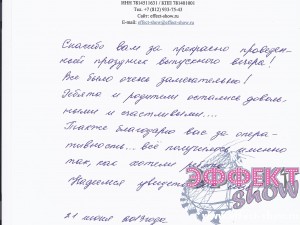 ИНН 7814511631 / КПП 781401001
Тел. +7 (812) 933-75-43
Сайт: effekt-show.ru
E-mail: effekt-show@effekt-show.ru
Спасибо вам за прекрасно проведен-
ный праздник выпускного вечера!
Все было очень замечательно!
Ребята и родители остались доволь-
ными и счастливыми...
Также благодарю вас за опера-
тивность... всё получилось именно
так, как хотели ребята
Надеемся
ЭФФЕКТ
show
21 июня 2013 года